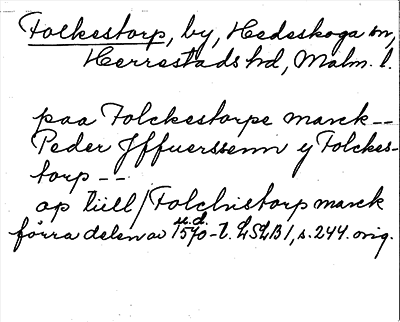 Folkestorp, by, Hedeskoga sn,
Herrestads hd, Malm. l.
paa Folckestorpe marck --
Peder Iffuerssenn y Folckes-
torp --
op tiill / Folchistorp marck
u.d.
förra delen av 1570-t. LSLB1, s. 244. orig.